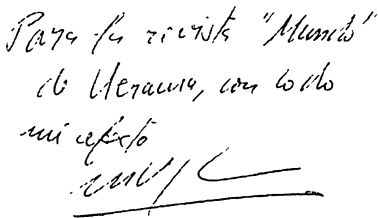 Para la revista "Mundo"
de Ucrania, con todo
mi afecto